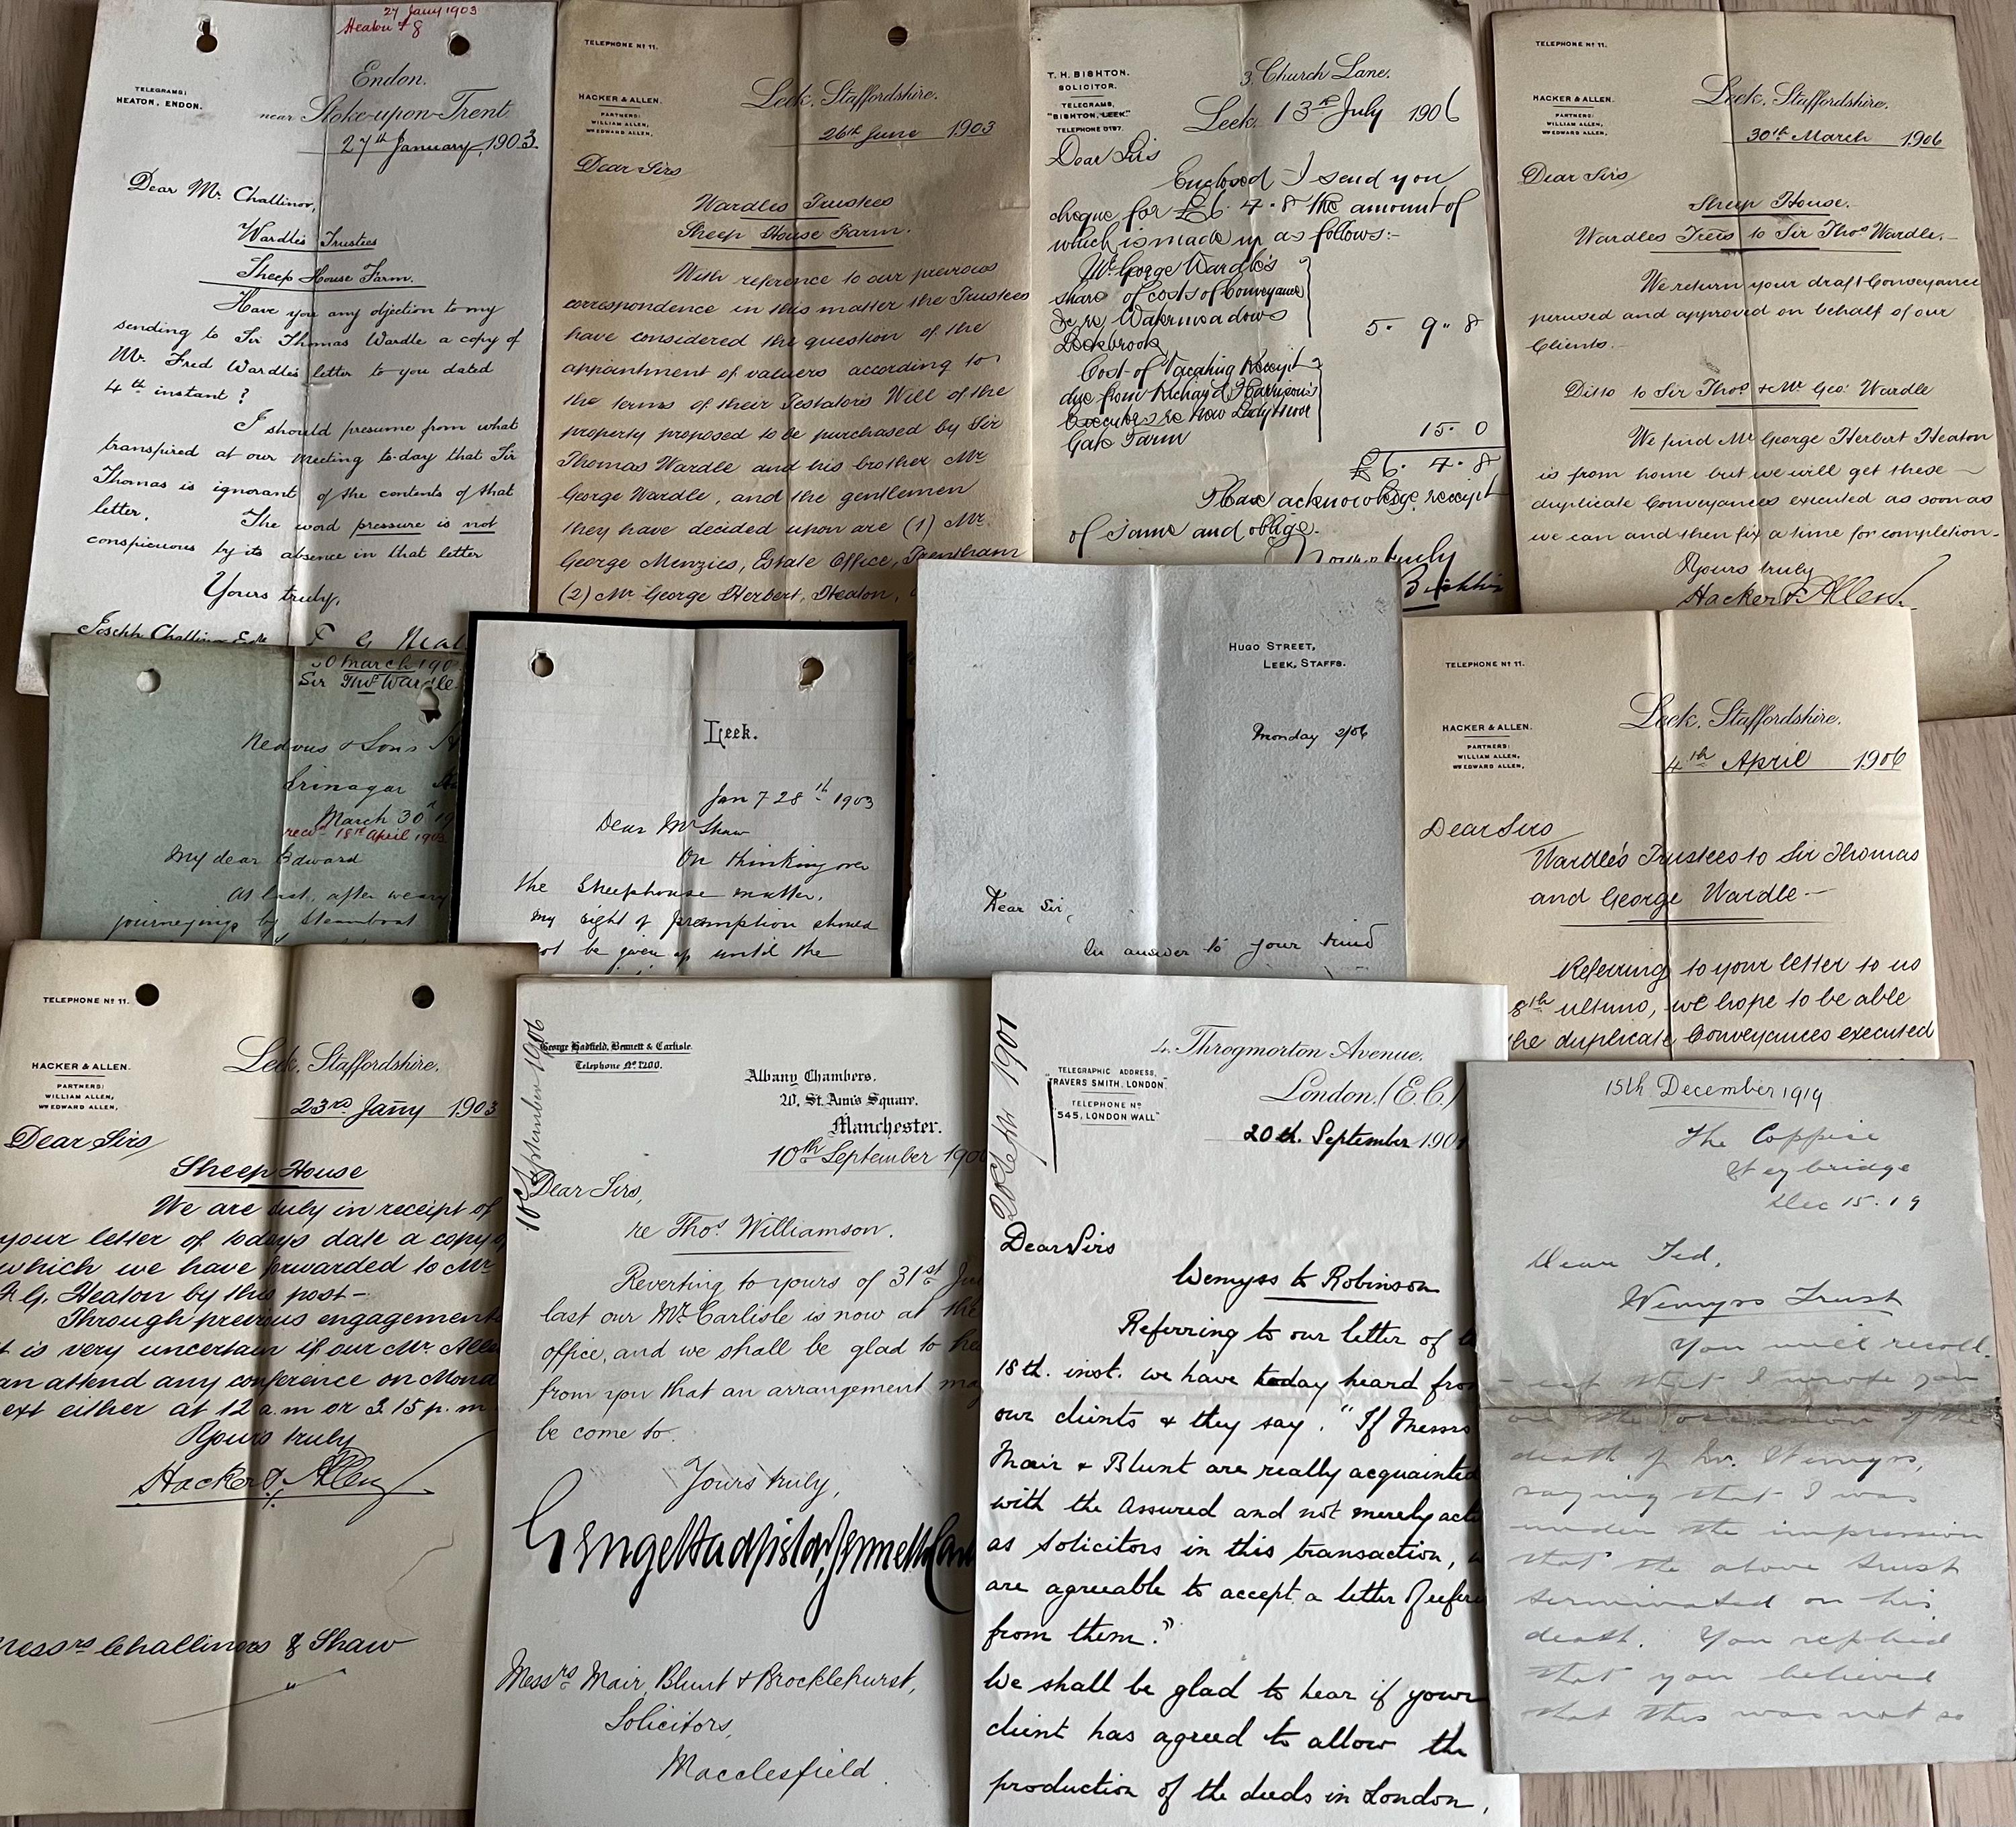 27 Jany 1903
Heaton F G
TELEGRAMS:
HEATON, ENDON.
Endon.
near Stoke-upon-Trent
27th January, 1903.
Dear Mr. Challinor,
Wardle's Trustees
Sheep House Farm.
Have you any objection to my
sending to Sir Thomas Wardle a copy of
Mr. Fred Wardle's letter to you dated
4th instant?
I should presume from what
transpired at our meeting to-day that Sir
Thomas is ignorant of the contents of that
letter. The word pressure is not
conspicuous by its absence in that letter
Yours truly,
Joseph Challinor Esqre
TELEPHONE No 11.
HACKER & ALLEN.
PARTNERS:
WILLIAM ALLEN,
WM EDWARD ALLEN.
Leek, Staffordshire.
26th June 1903
Dear Sirs
Wardles Trustees
Sheep House Farm.
With reference to our previous
correspondence in this matter the Trustees
have considered the question of the
appointment of valuers according to
the terms of their Testators Will of the
property proposed to be purchased by Sir
Thomas Wardle and his brother Mr
George Wardle, and the gentlemen
they have decided upon are (1) Mr.
George Menzies, Estate Office, Trentham
(2) Mr George Herbert, Heaton,
T. H. BISHTON.
SOLICITOR.
TELEGRAMS,
"BISHTON, LEEK."
TELEPHONE 0197.
3, Church Lane.
Leek, 13th July 1906
Dear Sirs
Enclosed I send you
cheque for £6. 4. 8 the amount of
which is made up as follows:-
Mr George Wardle's
share of costs of Conveyance
&c re Watermeadows
5. 9. 8
Cost of Vacating Receipt
due from Richard Harrison's
Executors re
Gate Farm
15. 0
£6. 4. 8
Please acknowledge receipt
of same and oblige.
Yours truly
Bishton
TELEPHONE No 11.
HACKER & ALLEN.
PARTNERS:
WILLIAM ALLEN,
WM EDWARD ALLEN.
Leek, Staffordshire.
30th March 1906
Dear Sirs
Sheep House.
Wardles Trees to Sir Thos Wardle.-
We return your draft Conveyance
perused and approved on behalf of our
Clients.-
Ditto to Sir Thos & Mr Geo: Wardle
We find Mr George Herbert Heaton
is from home but we will get these
duplicate Conveyances executed as soon as
we can and then fix a time for completion.
Yours truly
Hacker & Allen.
30 March 190
Sir Thos Wardle.
Nedous & Sons H
Srinagar
March 30th 19
recd 18th April 1903
My dear Edward
At last, after weary
journeyings by steamboat
Leek.
Jany 28th 1903
Dear Mr Shaw
On thinking over
the Sheephouse matter,
my right of preemption should
not be given up until the
HUGO STREET,
LEEK, STAFFS.
Monday 2/06
Dear Sir,
In answer to your kind
TELEPHONE No 11.
HACKER & ALLEN.
PARTNERS:
WILLIAM ALLEN,
WM EDWARD ALLEN,
Leek, Staffordshire.
4th April 1906
Dear Sirs
Wardle's Trustees to Sir Thomas
and George Wardle-
Referring to your letter to us
8th ultimo, we hope to be able
the duplicate Conveyances executed
TELEPHONE No 11.
HACKER & ALLEN.
PARTNERS:
WILLIAM ALLEN,
WM EDWARD ALLEN,
Leek, Staffordshire.
23rd Jany 1903
Dear Sirs
Sheep House
We are duly in receipt of
your letter of todays date a copy of
which we have forwarded to Mr
F. G. Heaton by this post-
Through previous engagements
it is very uncertain if our Mr. Alle
an attend any conference on Mond
ext either at 12 a.m or 3.15 p.m
Yours truly
Hacker & Allen
Messrs Challinors & Shaw
10 September 1906
George Hadfield, Bennett & Carlisle.
Telephone No 1200.
Albany Chambers,
20, St. Ann's Square,
Manchester.
10th September 190
Dear Sirs,
re Thos. Williamson.
Reverting to yours of 31st Ju
last our Mr. Carlisle is now at the
office, and we shall be glad to he
from you that an arrangement ma
be come to.
Yours truly,
George Hadfield, Bennett & Car
Messrs Mair, Blunt & Brocklehurst,
Solicitors,
Macclesfield.
20 Septr 1901
4, Throgmorton Avenue,
TELEGRAPHIC ADDRESS,
"TRAVERS SMITH, LONDON."
TELEPHONE No
"545, LONDON WALL"
London, (E.C.)
20th. September 1901
Dear Sirs
Wemyss to Robinson
Referring to our letter of t
18th. inst. we have today heard from
our clients & they say. "If Messrs
Mair & Blunt are really acquainted
with the Assured and not merely acti
as Solicitors in this transaction, w
are agreeable to accept a letter of refere
from them."
We shall be glad to hear if your
client has agreed to allow the
production of the deeds in London,
15th December 1919
The Coppice
Weybridge
Dec 15. 19
Dear Ted,
Wemyss Trust
You will recoll-
-ect that I wrote you
on the occasion of the
death of Dr. Wemyss,
saying that I was
under the impression
that the above trust
terminated on his
death. You replied
that you believed
that this was not so